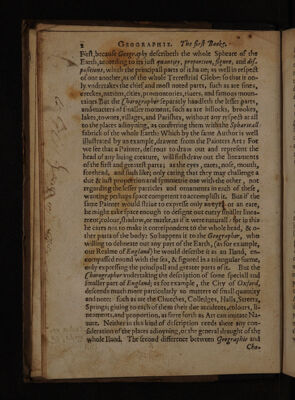 2 GEOGRAPHIE. The first Booke.
First, because Geography describeth the whole Spheare of the
Earth, according to its iust quantity, proportion, figure, and dis-
positions, which the principall parts of it haue; as well in respect
of one another, as of the whole Terrestriall Globe: so that it on-
ly vndertakes the chief and most noted parts, such as are
nations, cities, promontories, riuers, and famous moun-
taines: But the Chorographer separatly handleth the lesser parts,
and matters of smaller moment, such as are hillocks, brookes,
lakes, townes, villages, and Parishes, without any respect at all
to the places adioyning, as conferring them with the Sphericall
fabrick of the whole Earth: Which by the same Author is well
illustrated by an example, drawne from the Painters Art: For
we see that a Painter, desirous to draw out and represent the
head of any liuing creature, will first draw out the lineaments
of the first and greatest parts: as the eyes, eares, nose, mouth,
forehead, and such like; only caring that they may challenge a
due & iust proportion and symmetrie one with the other, not
regarding the lesser particles and ornaments in each of these,
wanting perhaps space competent to accomplish it. But if the
same Painter would striue to expresse only an eye or an eare,
he might take space enough to designe out euery smaller linea-
ment, colour, shadow, or marke, as if it were naturall: for in this
he cares not to make it correspondent to the whole head, & o-
ther parts of the body: So happens it to the Geographer, who
willing to delineate out any part of the Earth, (as for example,
our Realme of England) he would describe it as an Iland, en-
compassed round with the sea, & figured in a triangular forme,
only expressing the principall and greater parts of it. But the
Chorographer vndertaking the description of some speciall and
smaller part of England; as for example, the City of Oxford,
descends much more particularly to matters of small quantity
and note: such as are the Churches, Colledges, Halls, Streets,
Springs; giuing to each of them their due accidents, colours, li-
neaments, and proportion, as farre forth as Art can imitate Na-
ture. Neither in this kind of description needs there any con-
sideration of the places adioyning, or the generall draught of the
whole Iland. The second difference between Geographie and
Cho-